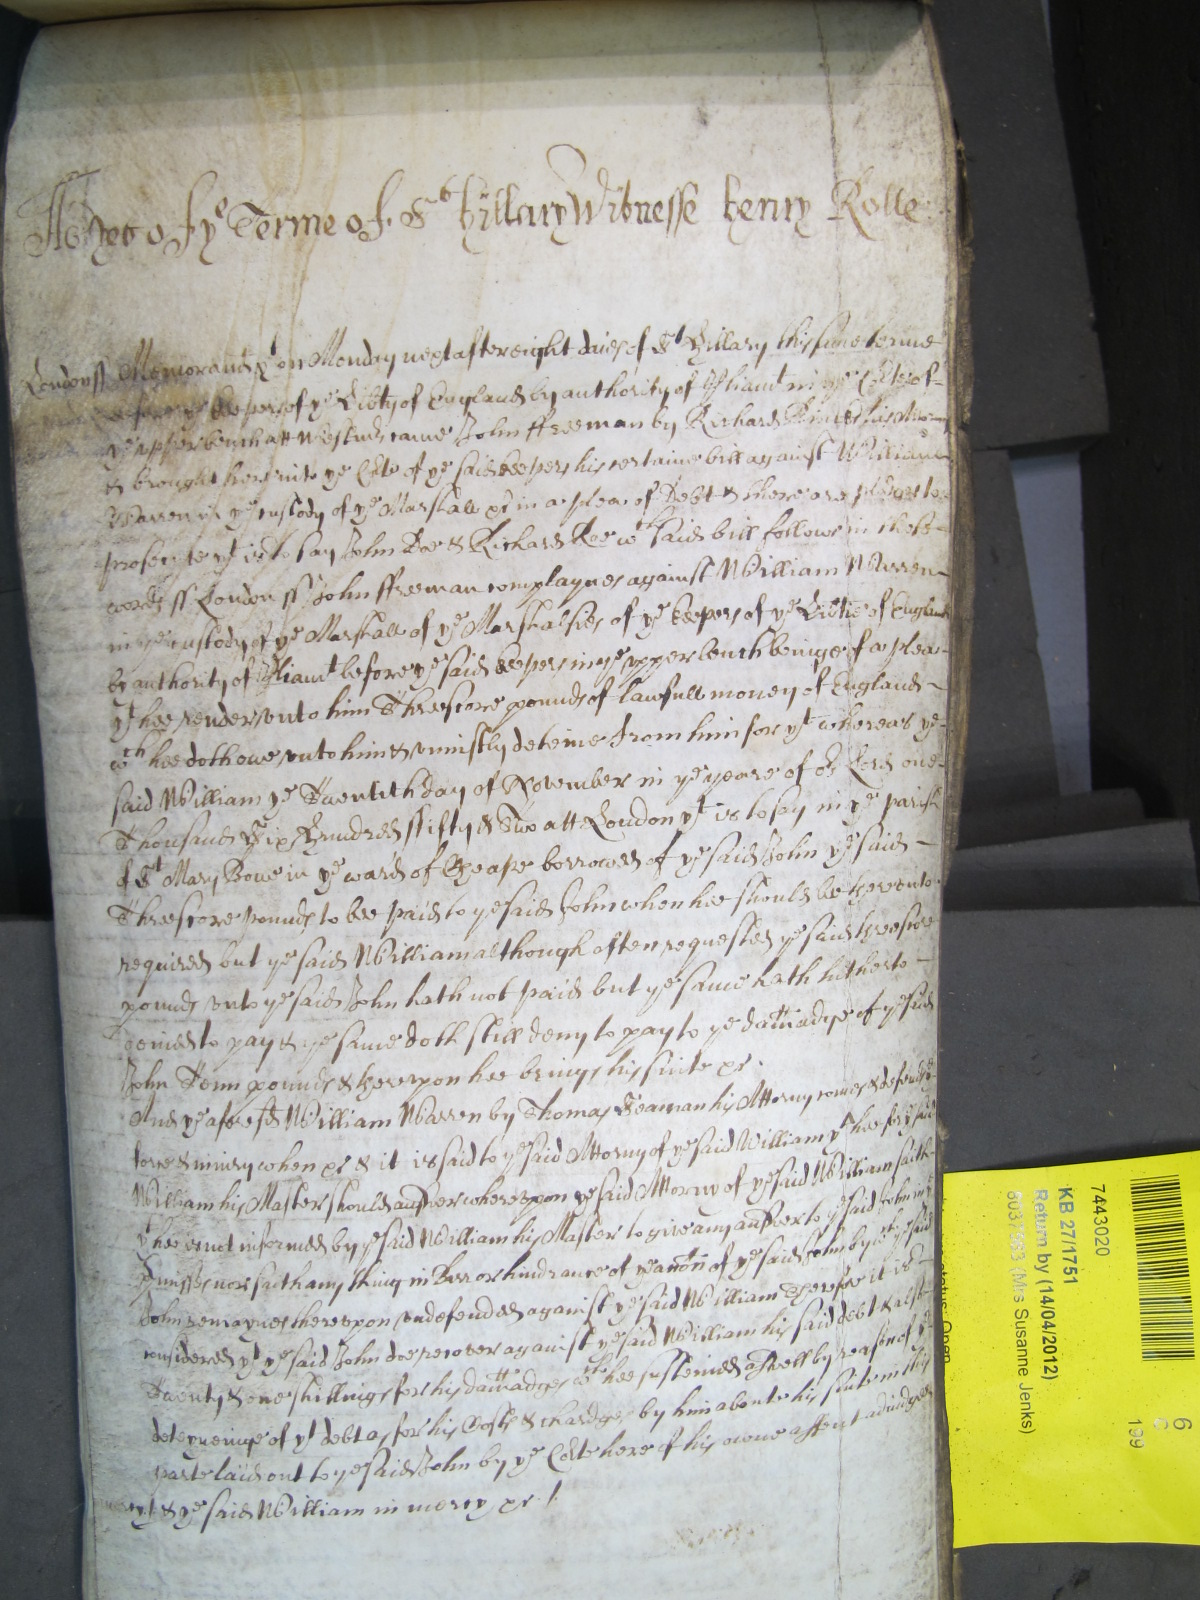 As yet of ye Terme of St Hillary Witnesse Henry Rolle
London ss Memorand yt on Monday next after eight daies of St Hillary this same terme
before ye keepers of ye Libty of England by authority of Parliamt in ye Court of
ye upper bench att Westm came John ffreeman by Richard his Attorney
& brought here into ye Court of ye said keepers his certaine bill against William
Warren in ye custody of ye Marshall &c in a plea of Debt & there are pledges to
prosecute yt is to say John Doe & Richard Roe wch said bill followes in these
words ss London ss John ffreeman complaynes against William Warren
in ye custody of ye Marshall of ye Marshalsies of ye keepers of ye Libtie of England
by authority of Parliamt before ye said keepers in ye upper bench beinge of a plea
yt hee render unto him Threescore pounds of lawfull money of England
wch hee doth owe unto him & uniustly deteine from him for yt whereas ye
said William ye Twentith day of November in ye yeare of or Lord one
Thousand Six Hundred ffifty & Two att London yt is to say in ye parish
of St Mary Bowe in ye ward of Cheape borrowed of ye said John ye said
Threescore pounds to bee paid to ye said John when hee should be thereunto
required but ye said William although often requested ye said threescore
pounds unto ye said John hath not paid but ye same hath hitherto
denied to pay & ye same doth still deny to pay to ye damadge of ye said
John Tenn pounds & thereupon hee brings his suite &c
And ye aforesd William Warren by Thomas Seaman his Attorny comes & defends ye
force & iniury when &c & it is said to ye said Attorny of ye said William yt hee for ye said
William his Master should answer whereupon ye said Attorny of ye said William saith
yt hee is not informed by ye said William his Master to give any answer to ye said John in ye
pmisses nor saith any thing in Barr or hindrance of ye action of ye said John by wch ye said
John remaynes thereupon undefended against ye said William Therefore it is
considered yt ye said John doe recover against ye said William his said debt & alsoe
Twenty & one shillings for his damadges wch hee susteined aswell by reason of ye
deteyneinge of yt debt as for his Costs & chardges by him about his suite in this
parte laid out to ye said John by ye Court here of his owne assent adiudged
& ye said William in mercy &c
7443020
KB 27/1751
Return by (14/04/2012)
(Mrs Susanne Jenks)
Open
6
6
199